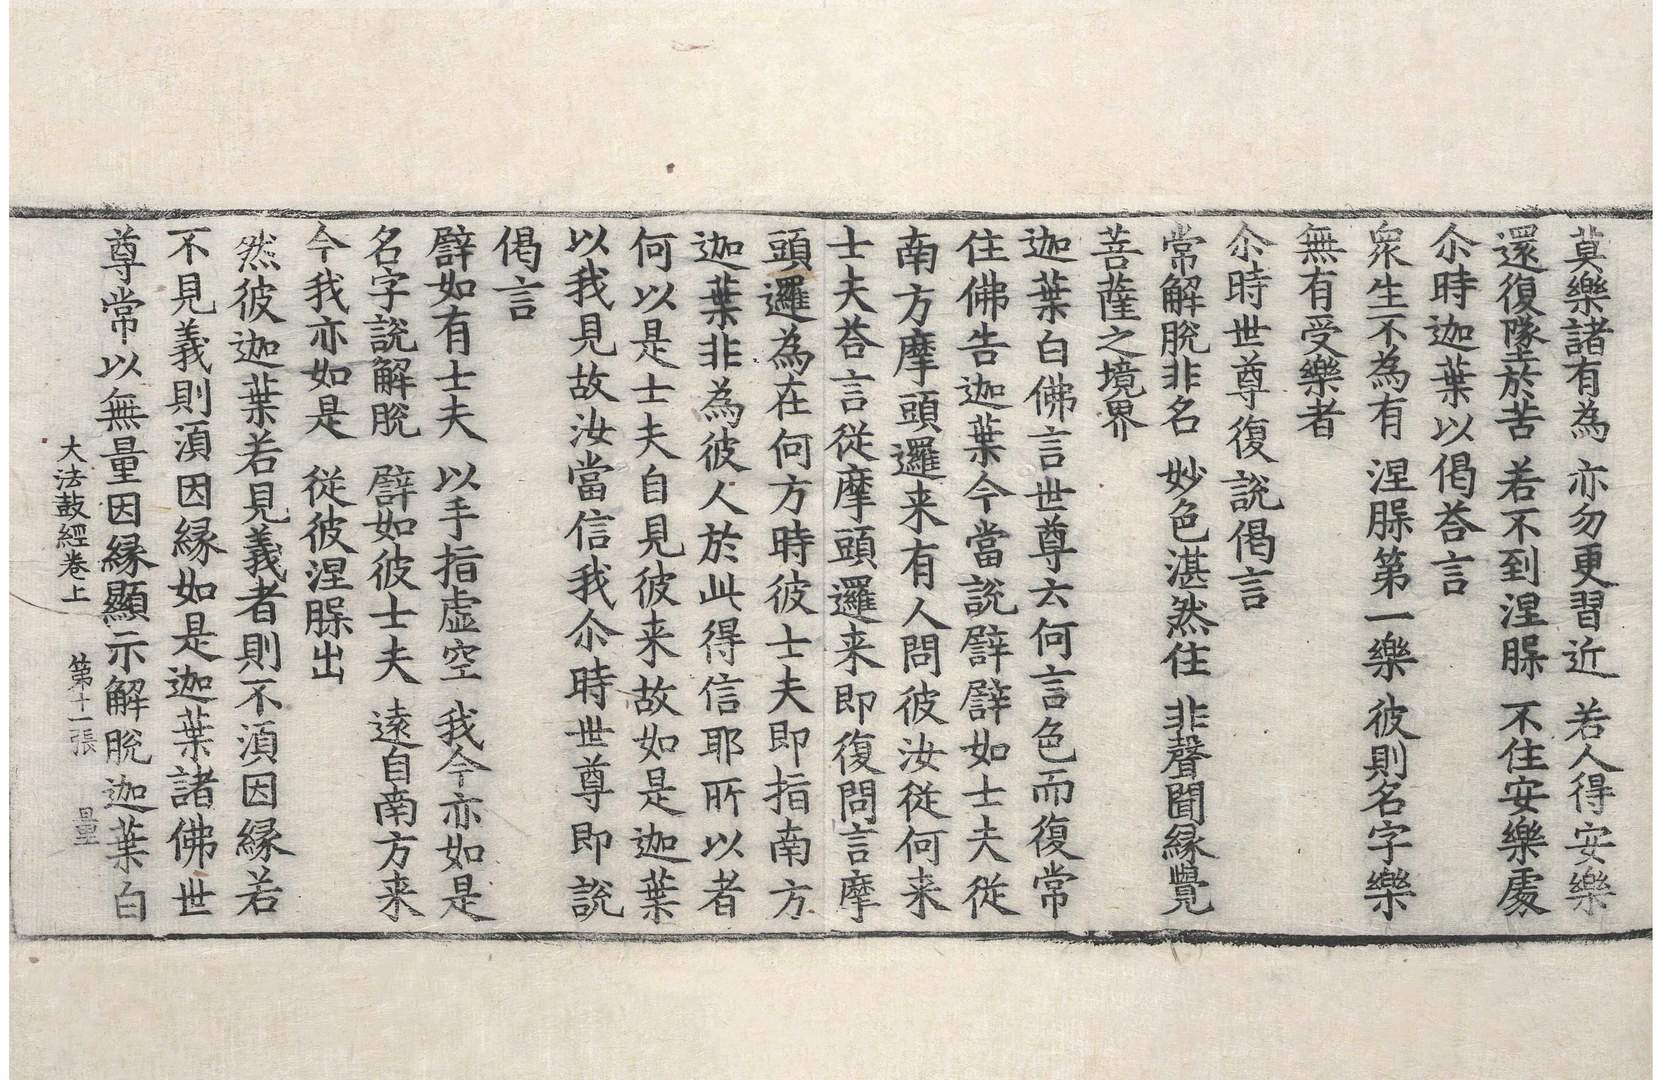 莫樂諸有為　亦勿更習近　若人得安樂
還復墜於苦　若不到涅槃　不住安樂處
尒時迦葉以偈荅言
衆生不為有　涅槃第一樂　彼則名字樂
無有受樂者
尒時世尊復說偈言
常解脫非名　妙色湛然住　非聲聞緣覺
菩薩之境界
迦葉白佛言世尊云何言色而復常
住佛告迦葉今當說譬譬如士夫從
南方摩頭邏来有人問彼汝從何来
士夫荅言從摩頭邏来即復問言摩
頭邏為在何方時彼士夫即指南方
迦葉非為彼人於此得信耶所以者
何以是士夫自見彼来故如是迦葉
以我見故汝當信我尒時世尊即說
偈言
譬如有士夫　以手指虛空　我今亦如是
名字說解脫　譬如彼士夫　遠自南方来
今我亦如是　從彼涅槃出
然彼迦葉若見義者則不湏因緣若
不見義則湏因緣如是迦葉諸佛世
尊常以無量因緣顯示解脫迦葉白
大法鼓經卷上　第十一張　量